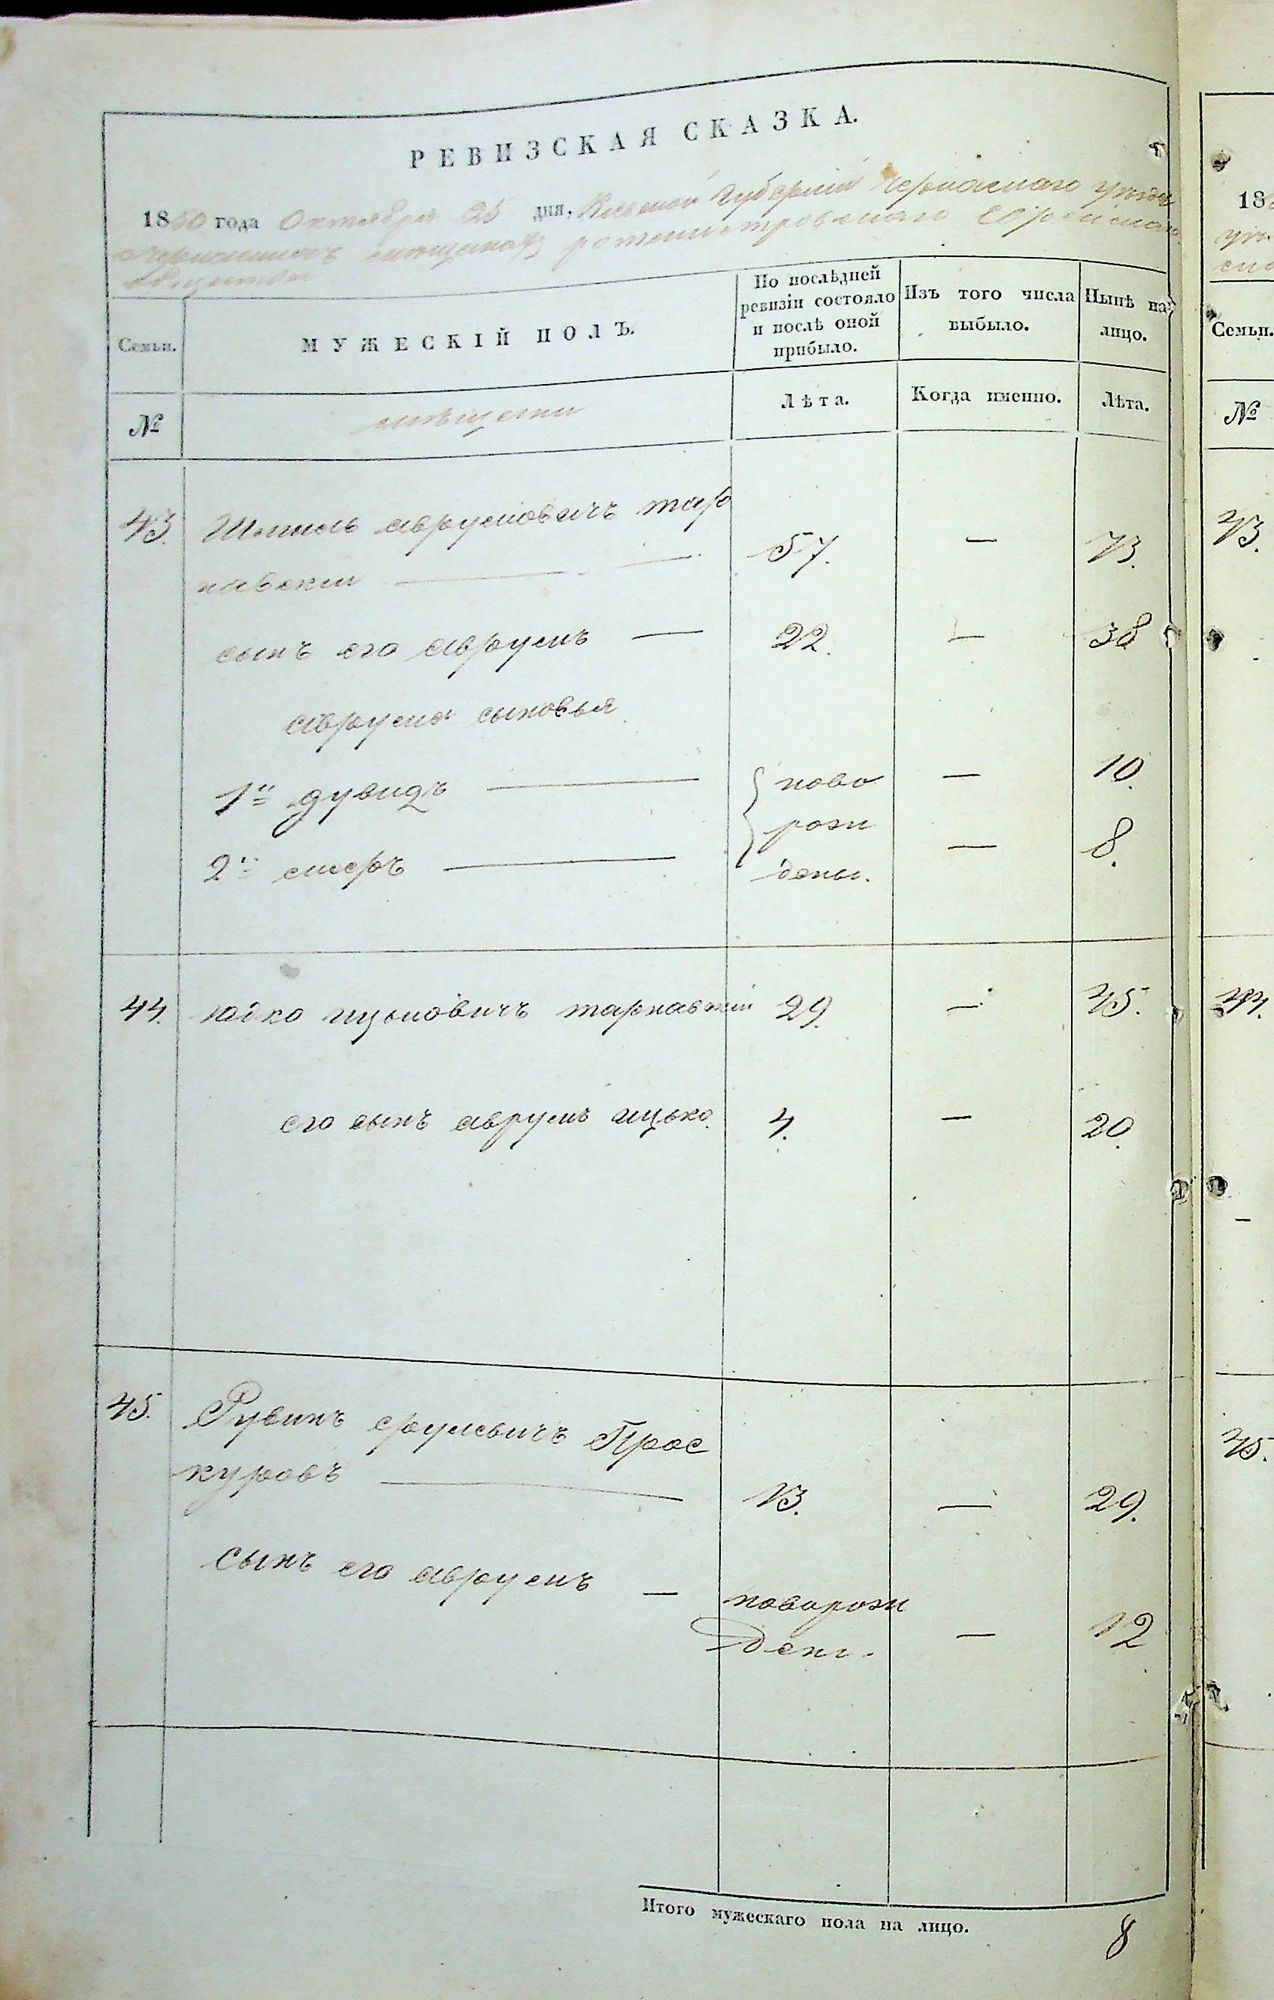 РЕВИЗСКАЯ СКАЗКА.
1850 года Октября 25 дня, Киевской Губернии Черкаского уезда
ротмистровского Еврейского
общества
Семьи.
МУЖЕСКІЙ ПОЛЪ.
По послѣдней ревизіи состояло и послѣ оной прибыло.
Изъ того числа выбыло.
Нынѣ на лицо.
№
мѣщени
Лѣта.
Когда именно.
Лѣта.
43. Шмиль аврумовичъ тар
навскии 57. — 73.
сынъ его аврумъ — 22. — 38
аврума сыновья
1й дувидъ ново — 10.
рож
2й смеръ — 8.
дены.
44. юдко ицковичъ тарнавскій 29. — 45.
его сынъ аврумъ ицько. 4. — 20.
45. Рувинъ срулевичъ Прос
куровъ 13. — 29.
сынъ его аврумъ — новорож
ден. — 12
Итого мужескаго пола на лицо. 8
18
Семьи.
№
43.
44.
45.